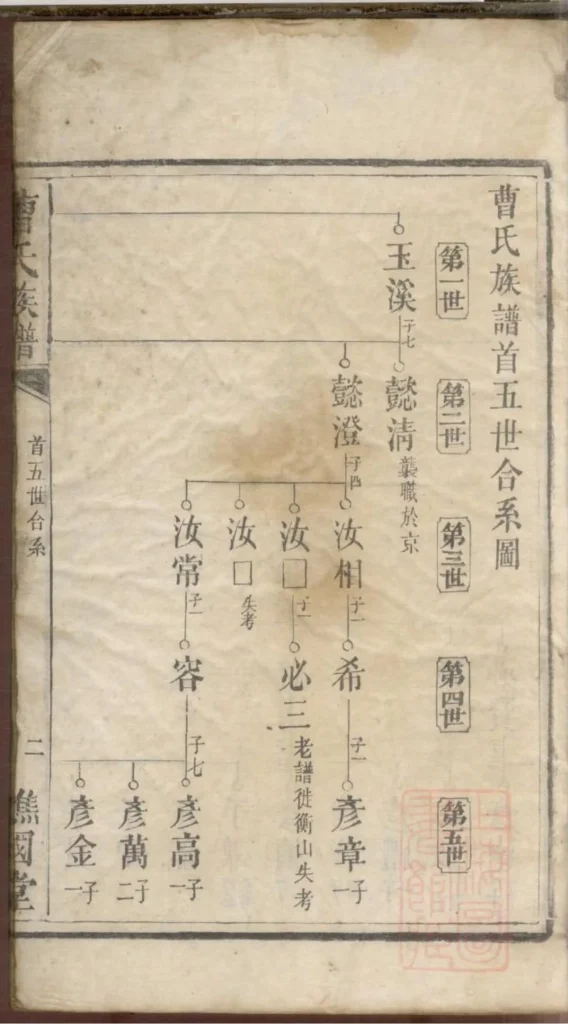 曹氏族譜首五世合系圖
第一世
第二世
第三世
第四世
第五世
玉溪
子七
懿清
襲職於京
懿澄
子四
汝相
子一
希
子一
彥章
子一
汝囗
子一
必三
老譜徙衡山失考
汝囗
失考
汝常
子一
容
子七
彥高
子一
彥萬
子二
彥金
子一
曹氏族譜
首五世合系
二
譙國堂